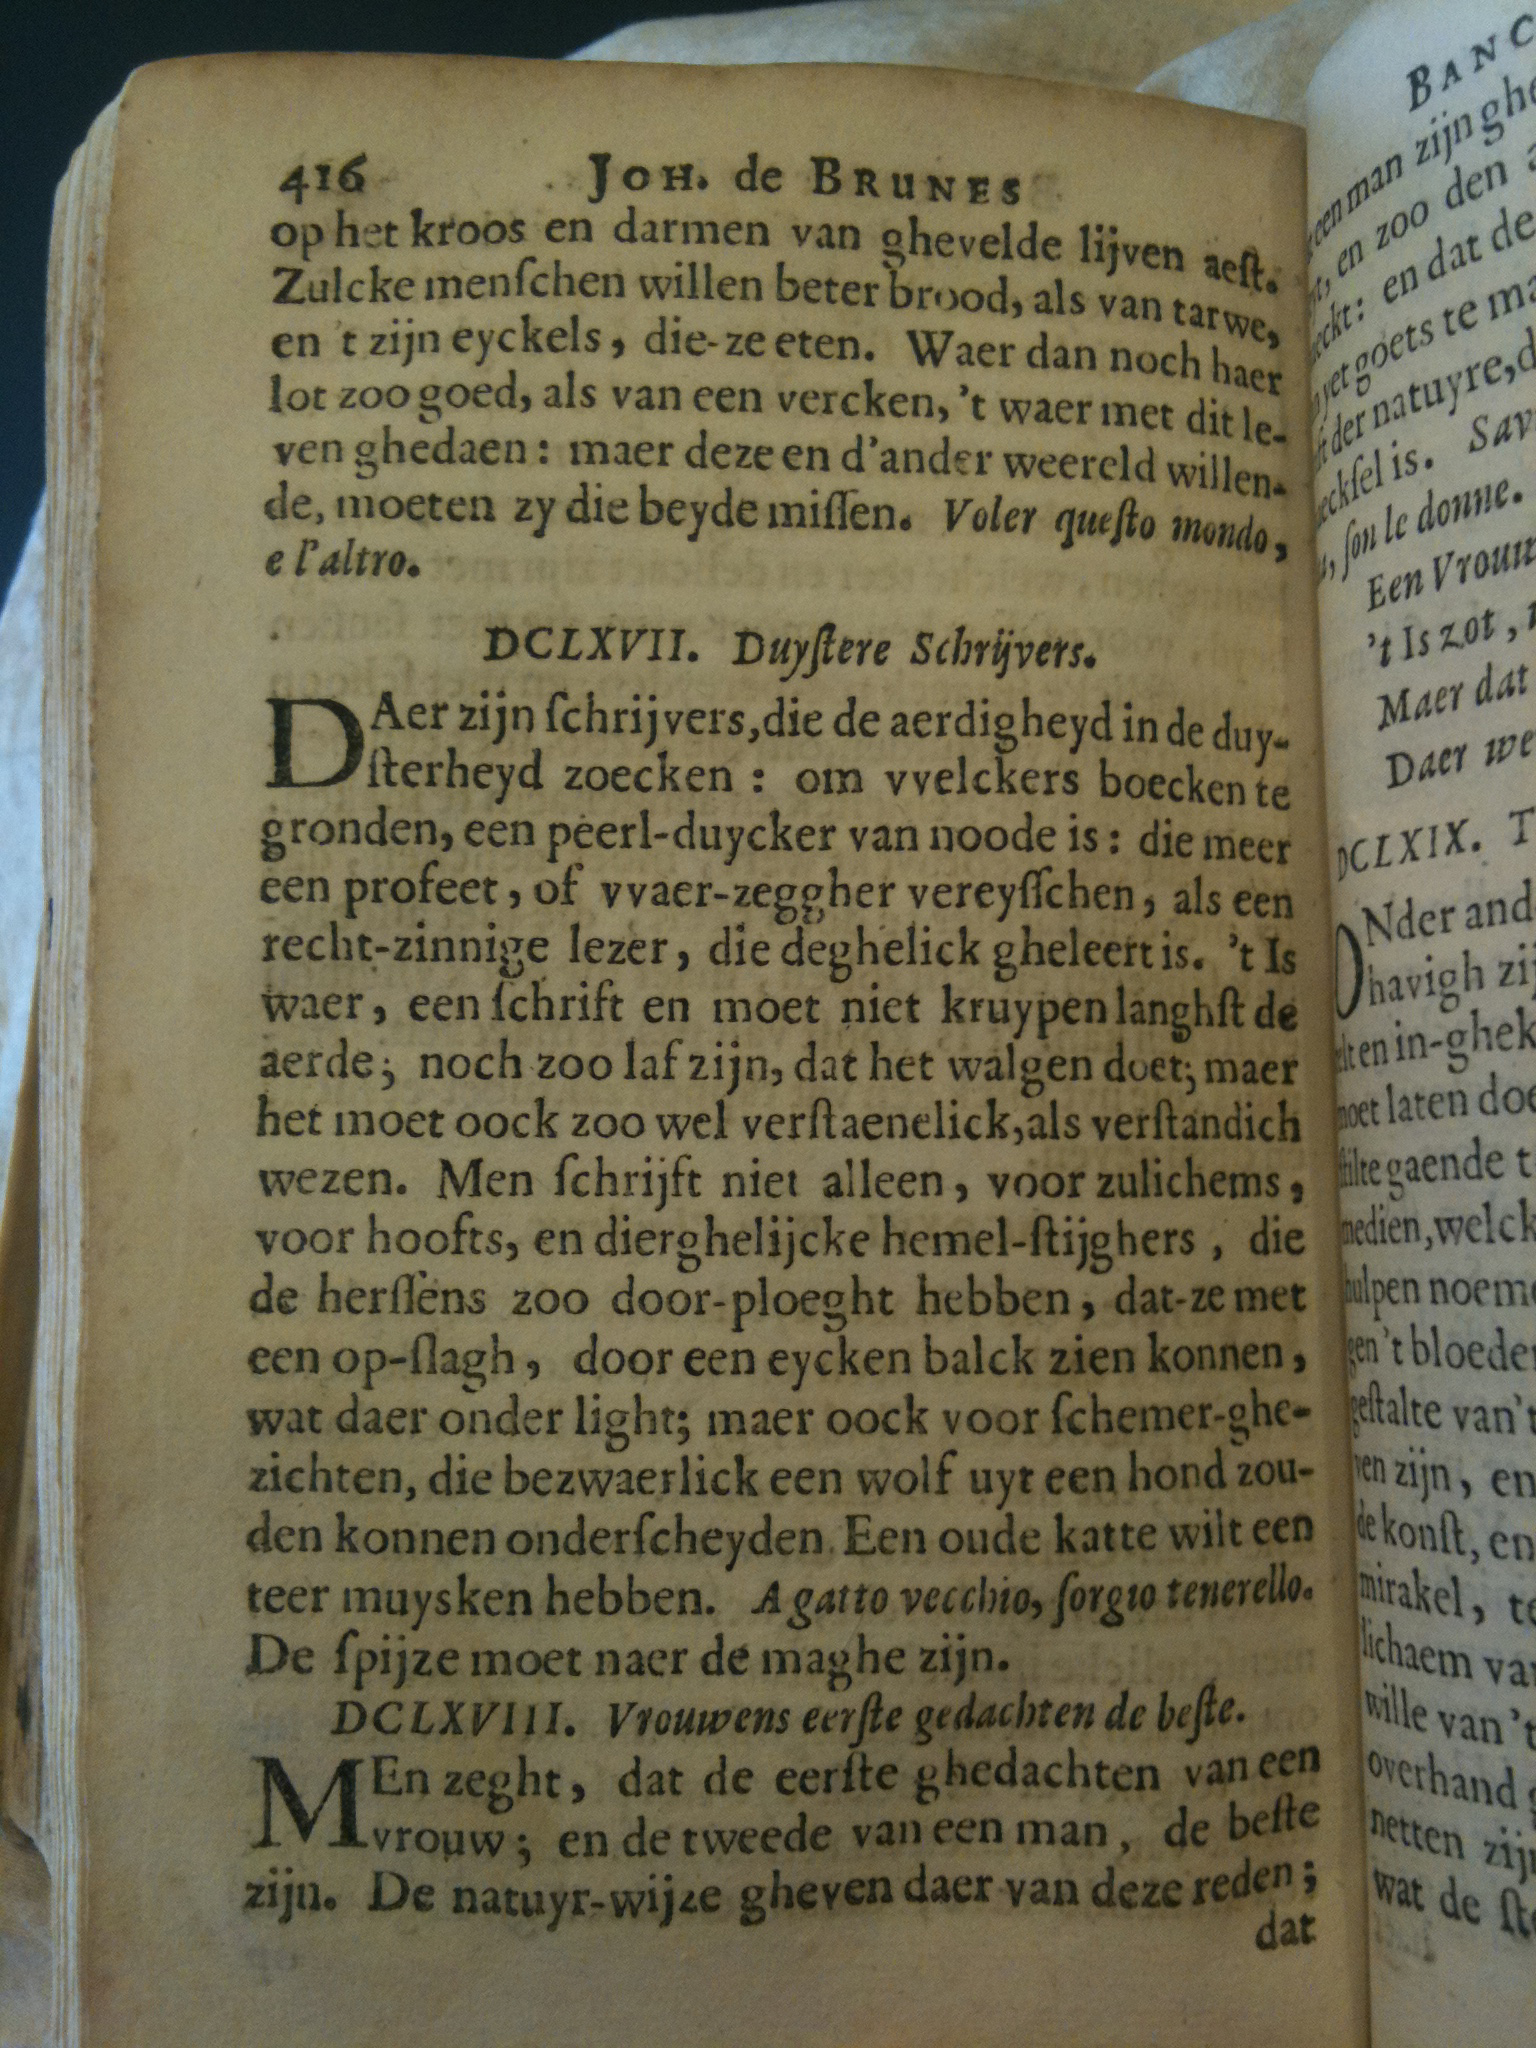 416 JOH. de BRUNES
op het kroos en darmen van ghevelde lijven aeſt.
Zulcke menſchen willen beter brood, als van tarwe,
en 't zijn eyckels, die-ze eten. Waer dan noch haer
lot zoo goed, als van een vercken, 't waer met dit le-
ven ghedaen: maer deze en d'ander weereld willen-
de, moeten zy die beyde miſſen. Voler queſto mondo,
e l'altro.
DCLXVII. Duyſtere Schrijvers.
DAer zijn ſchrijvers, die de aerdigheyd in de duy-
ſterheyd zoecken: om vvelckers boecken te
gronden, een peerl-duycker van noode is: die meer
een profeet, of vvaer-zeggher vereyſſchen, als een
recht-zinnige lezer, die deghelick gheleert is. 't Is
waer, een ſchrift en moet niet kruypen langhſt de
aerde; noch zoo laf zijn, dat het walgen doet; maer
het moet oock zoo wel verſtaenelick, als verſtandich
wezen. Men ſchrijft niet alleen, voor zulichems,
voor hoofts, en dierghelijcke hemel-ſtijghers, die
de herſſens zoo door-ploeght hebben, dat-ze met
een op-ſlagh, door een eycken balck zien konnen,
wat daer onder light; maer oock voor ſchemer-ghe-
zichten, die bezwaerlick een wolf uyt een hond zou-
den konnen onderſcheyden. Een oude katte wilt een
teer muysken hebben. A gatto vecchio, ſorgio tenerello.
De ſpijze moet naer de maghe zijn.
DCLXVIII. Vrouwens eerſte gedachten de beſte.
MEn zeght, dat de eerſte ghedachten van een
vrouw; en de tweede van een man, de beſte
zijn. De natuyr-wijze gheven daer van deze reden;
dat
BANC
een man zijn ghe
en zoo den
: en dat de
yet goets te ma
der natuyre, d
is. Sav
ſon le donne.
Een Vrouw
't Is zot,
Maer dat
Daer we
DCLXIX. T
ONder and
havigh zij
en in-ghek
laten doe
gaende t
welck
noem
't bloede
van 't
zijn, en
de konſt, en
mirakel, te
lichaem va
wille van 't
overhand
netten zij
wat de ſt